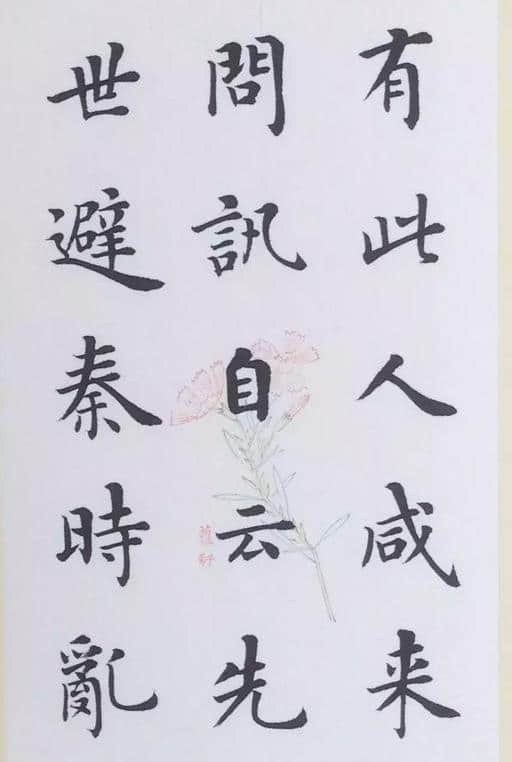 有此人咸来
問訊自云先
世避秦時亂